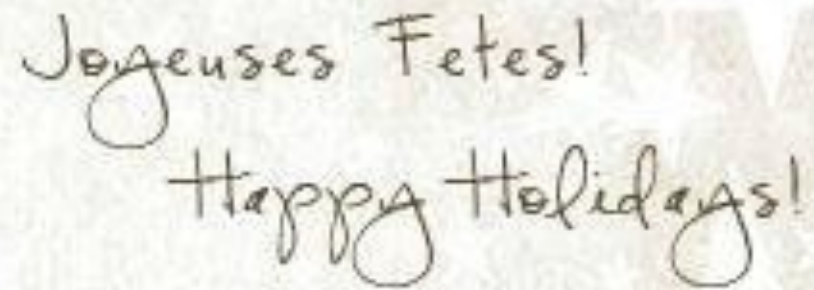 Joyeuses Fetes!
Happy Holidays!